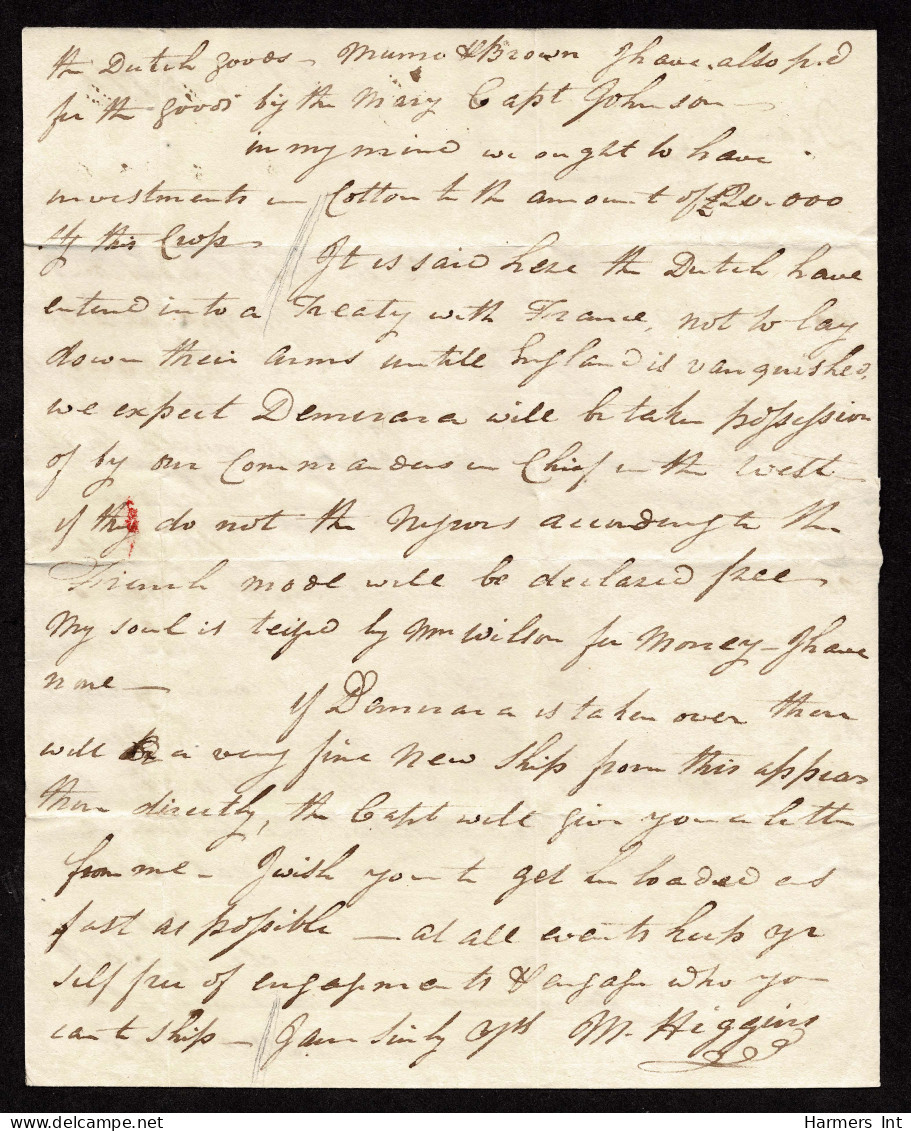 the Dutch goods - Munro & Brown I have also p.d
for the goods by the Mary Capt Johnson
in my mind we ought to have
investments in Cotton to the amount of £20.000
of this Crop
It is said here the Dutch have
enterd into a Treaty with France, not to lay
down their arms untill England is vanquished,
we expect Demerara will be taken possession
of by our Commanders in Chief in the West
if they do not the Negroes according to the
French mode will be declared free
My soul is teized by Mr Wilson for Money - I have
none -
if Demerara is taken over there
will be a very fine New Ship from this appear
there directly, the Capt will give you a letter
from me - I wish you to get her loaded as
fast as possible - at all events keep yr
self free of engagements & engage who you
can to ship - I am sinly Yrs M. Higgins
Harmers Int